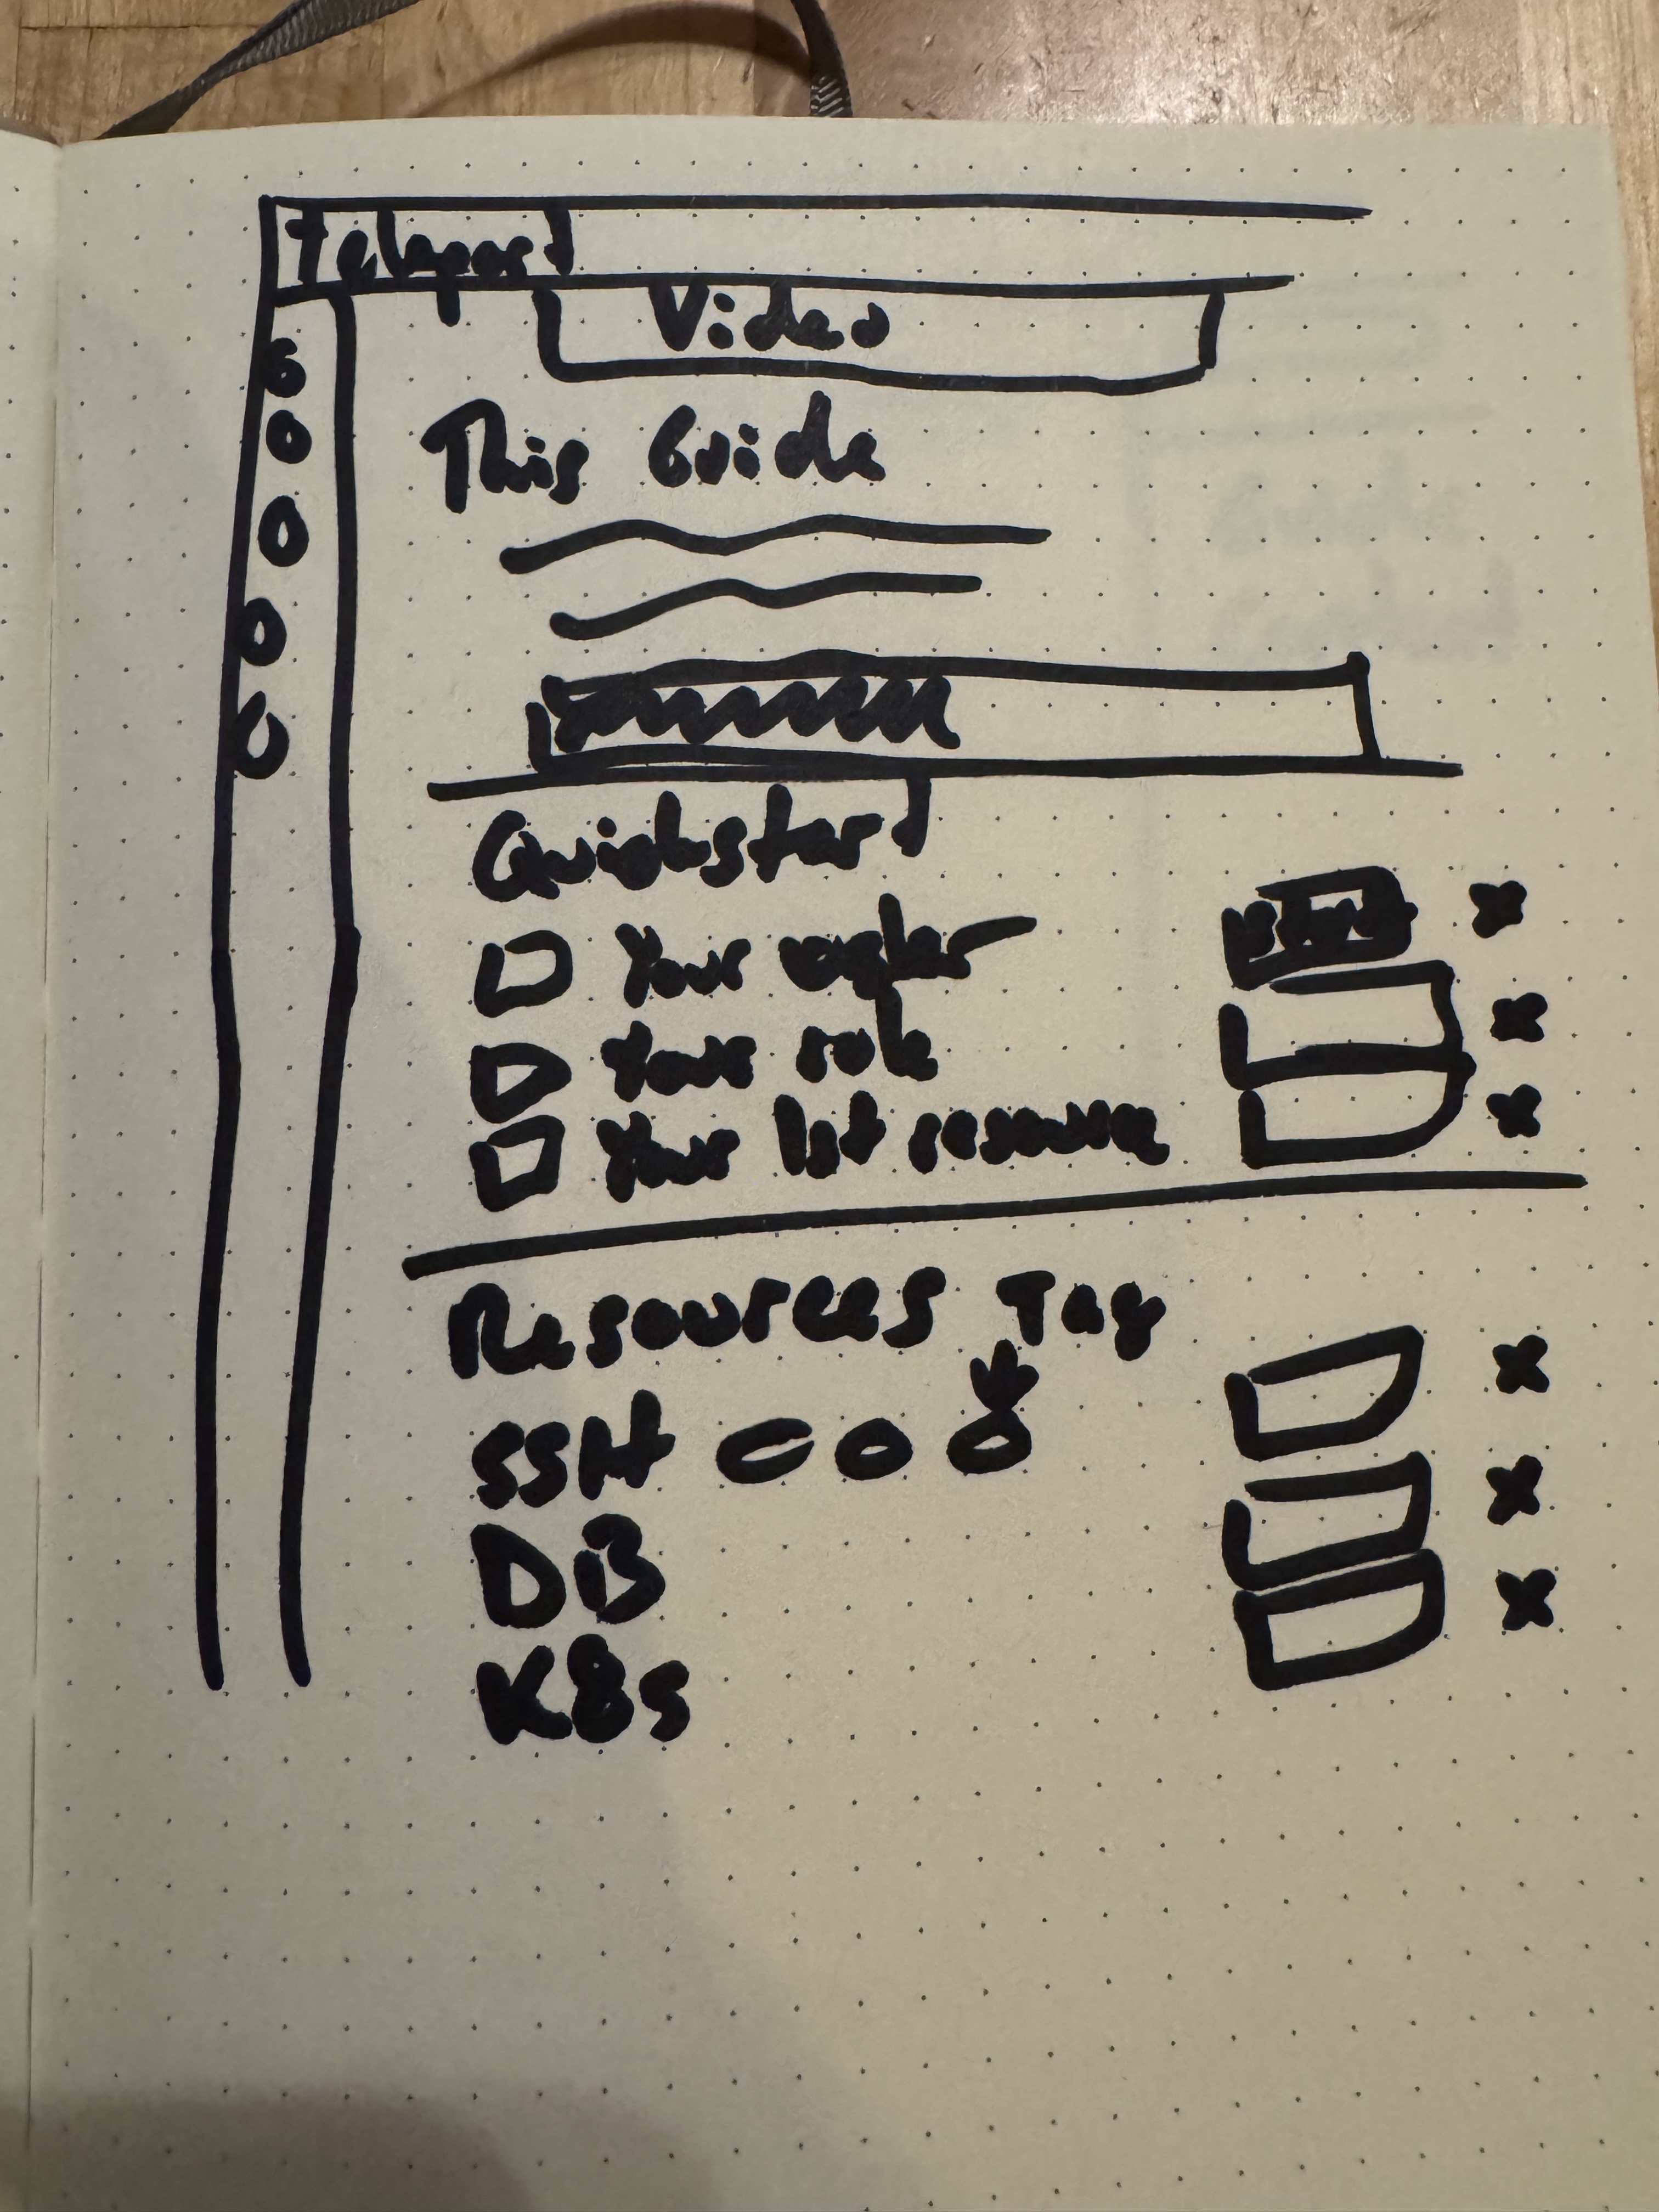 Teleport
Video
This Guide
Quickstart
Your
Your role
Your 1st resource
Resources Tag
SSH
DB
K8s